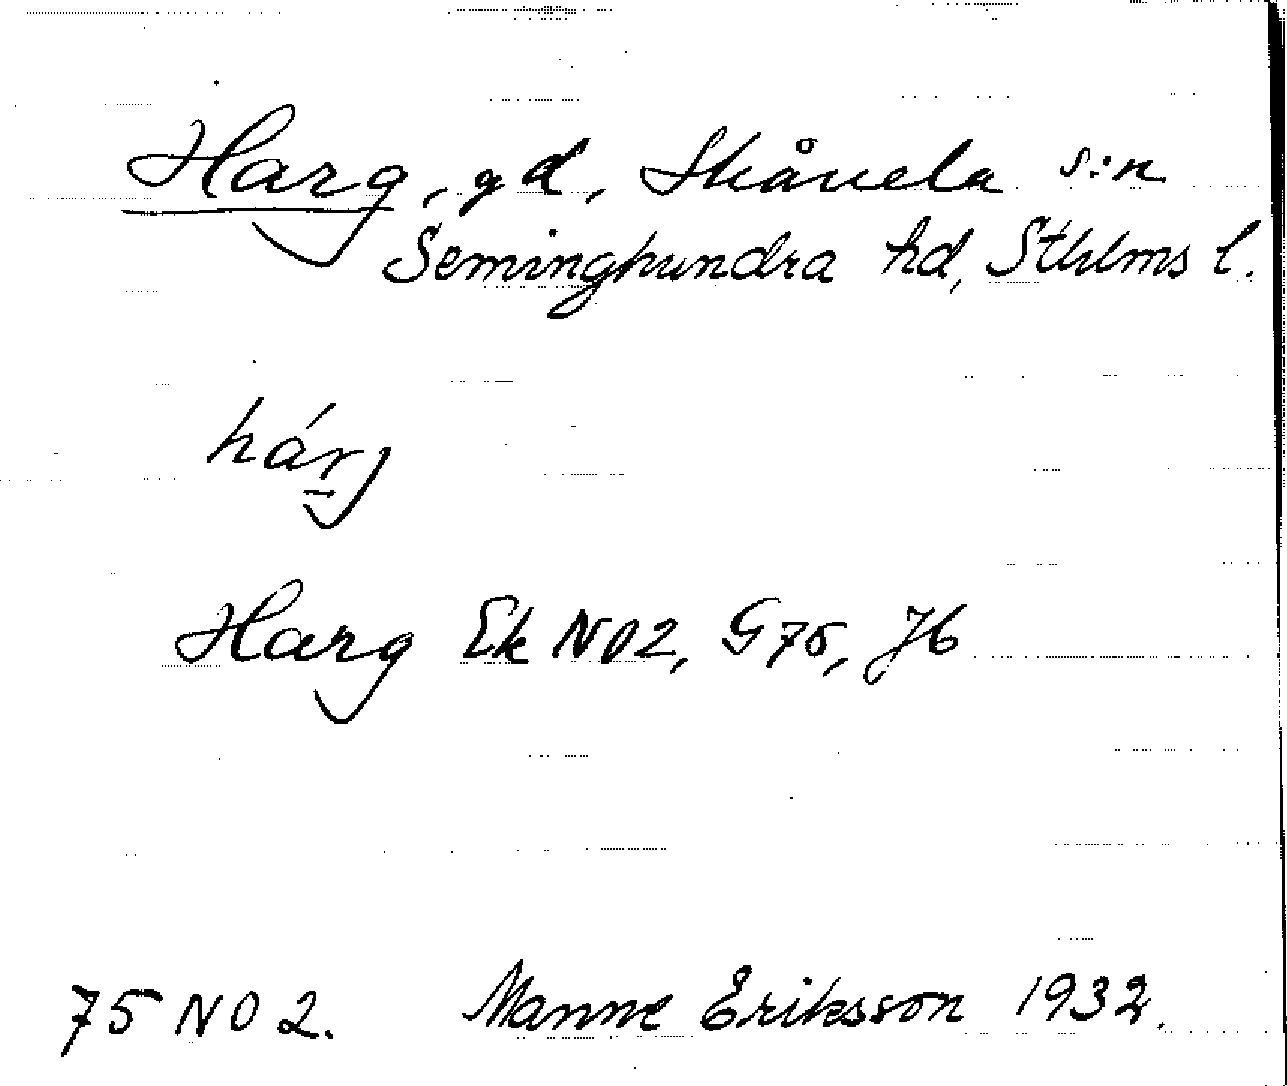 Harg, gd, Skånela s:n
Seminghundra hd, Sthlms l.
hárj
Harg Ek NO2, G75, Jb
75 NO 2. Manne Eriksson 1932.